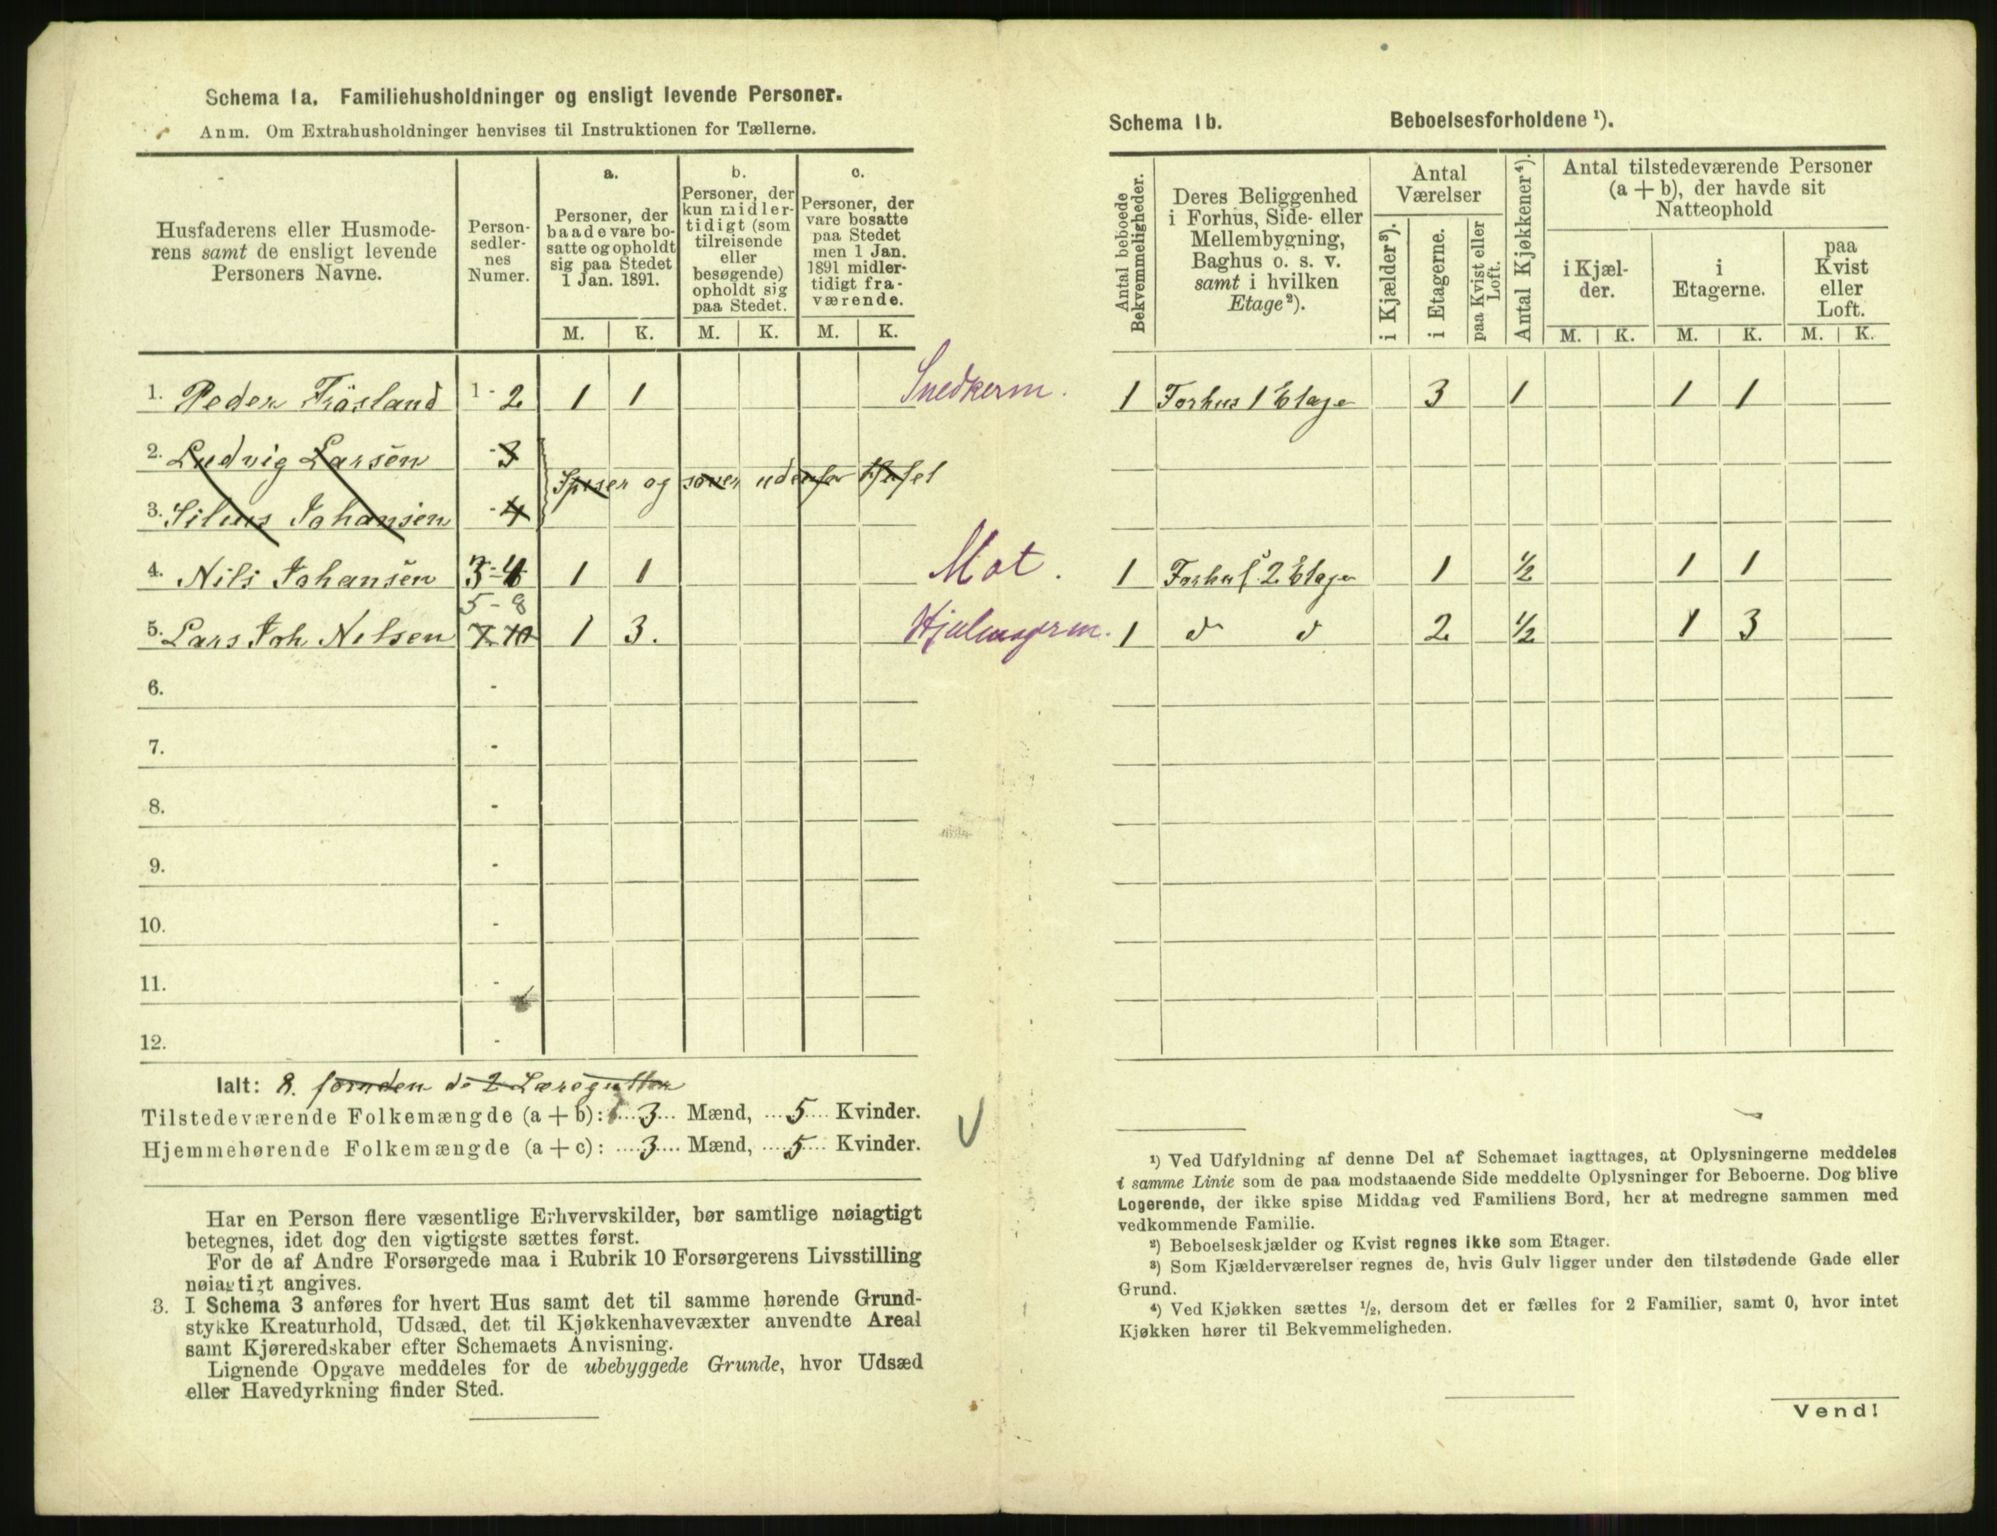 Schema 1a. Familiehusholdninger og ensligt levende Personer.
Anm. Om Extrahusholdninger henvises til Instruktionen for Tællerne.
Husfaderens eller Husmoderens samt de ensligt levende Personers Navne.
Personsedlernes Numer.
a.
Personer, der baade vare bosatte og opholdt sig paa Stedet 1 Jan. 1891.
b.
Personer, der kun midlertidigt (som tilreisende eller besøgende) opholdt sig paa Stedet.
c.
Personer, der vare bosatte paa Stedet men 1 Jan. 1891 midlertidigt fraværende.
M. K. M. K. M. K.
1. Peder Frösland 1 - 2 1 1 Snedkerm.
2. Ludvig Larsen - 3
Spiser og sover udenfor Huset
3. Silius Johansen - 4
4. Nils Johansen 3 - 4 1 1 Mat.
5 - 8
5. Lars Joh Nelsen 7 - 10 1 3.
6. -
7. -
8. -
9. -
10. -
11. -
12. -
Ialt: 8. foruden de 2 Læregutter
Tilstedeværende Folkemængde (a + b): 3 Mænd, 5 Kvinder.
Hjemmehørende Folkemængde (a + c): 3 Mænd, 5 Kvinder.
Har en Person flere væsentlige Erhvervskilder, bør samtlige nøiagtigt
betegnes, idet dog den vigtigste sættes først.
For de af Andre Forsørgede maa i Rubrik 10 Forsørgerens Livsstilling
nøiagtigt angives.
3. I Schema 3 anføres for hvert Hus samt det til samme hørende Grund-
stykke Kreaturhold, Udsæd, det til Kjøkkenhavevæxter anvendte Areal
samt Kjøreredskaber efter Schemaets Anvisning.
Lignende Opgave meddeles for de ubebyggede Grunde, hvor Udsæd
eller Havedyrkning finder Sted.
Schema 1b. Beboelsesforholdene ¹).
Antal beboede Bekvemmeligheder.
Deres Beliggenhed i Forhus, Side- eller Mellembygning, Baghus o. s. v. samt i hvilken Etage ²).
Antal Værelser
i Kjælder ³).
i Etagerne.
paa Kvist eller Loft.
Antal Kjøkkener ⁴).
Antal tilstedeværende Personer (a + b), der havde sit Natteophold
i Kjælder.
i Etagerne.
paa Kvist eller Loft.
M. K. M. K. M. K.
1 Forhus 1 Etage 3 1 1 1
1 Forhus 2 Etage 1 ½ 1 1
1 d d 2 ½ 1 3
¹) Ved Udfyldning af denne Del af Schemaet iagttages, at Oplysningerne meddeles
i samme Linie som de paa modstaaende Side meddelte Oplysninger for Beboerne. Dog blive
Logerende, der ikke spise Middag ved Familiens Bord, her at medregne sammen med
vedkommende Familie.
²) Beboelseskjælder og Kvist regnes ikke som Etager.
³) Som Kjælderværelser regnes de, hvis Gulv ligger under den tilstødende Gade eller
Grund.
⁴) Ved Kjøkken sættes ½, dersom det er fælles for 2 Familier, samt 0, hvor intet
Kjøkken hører til Bekvemmeligheden.
Vend!